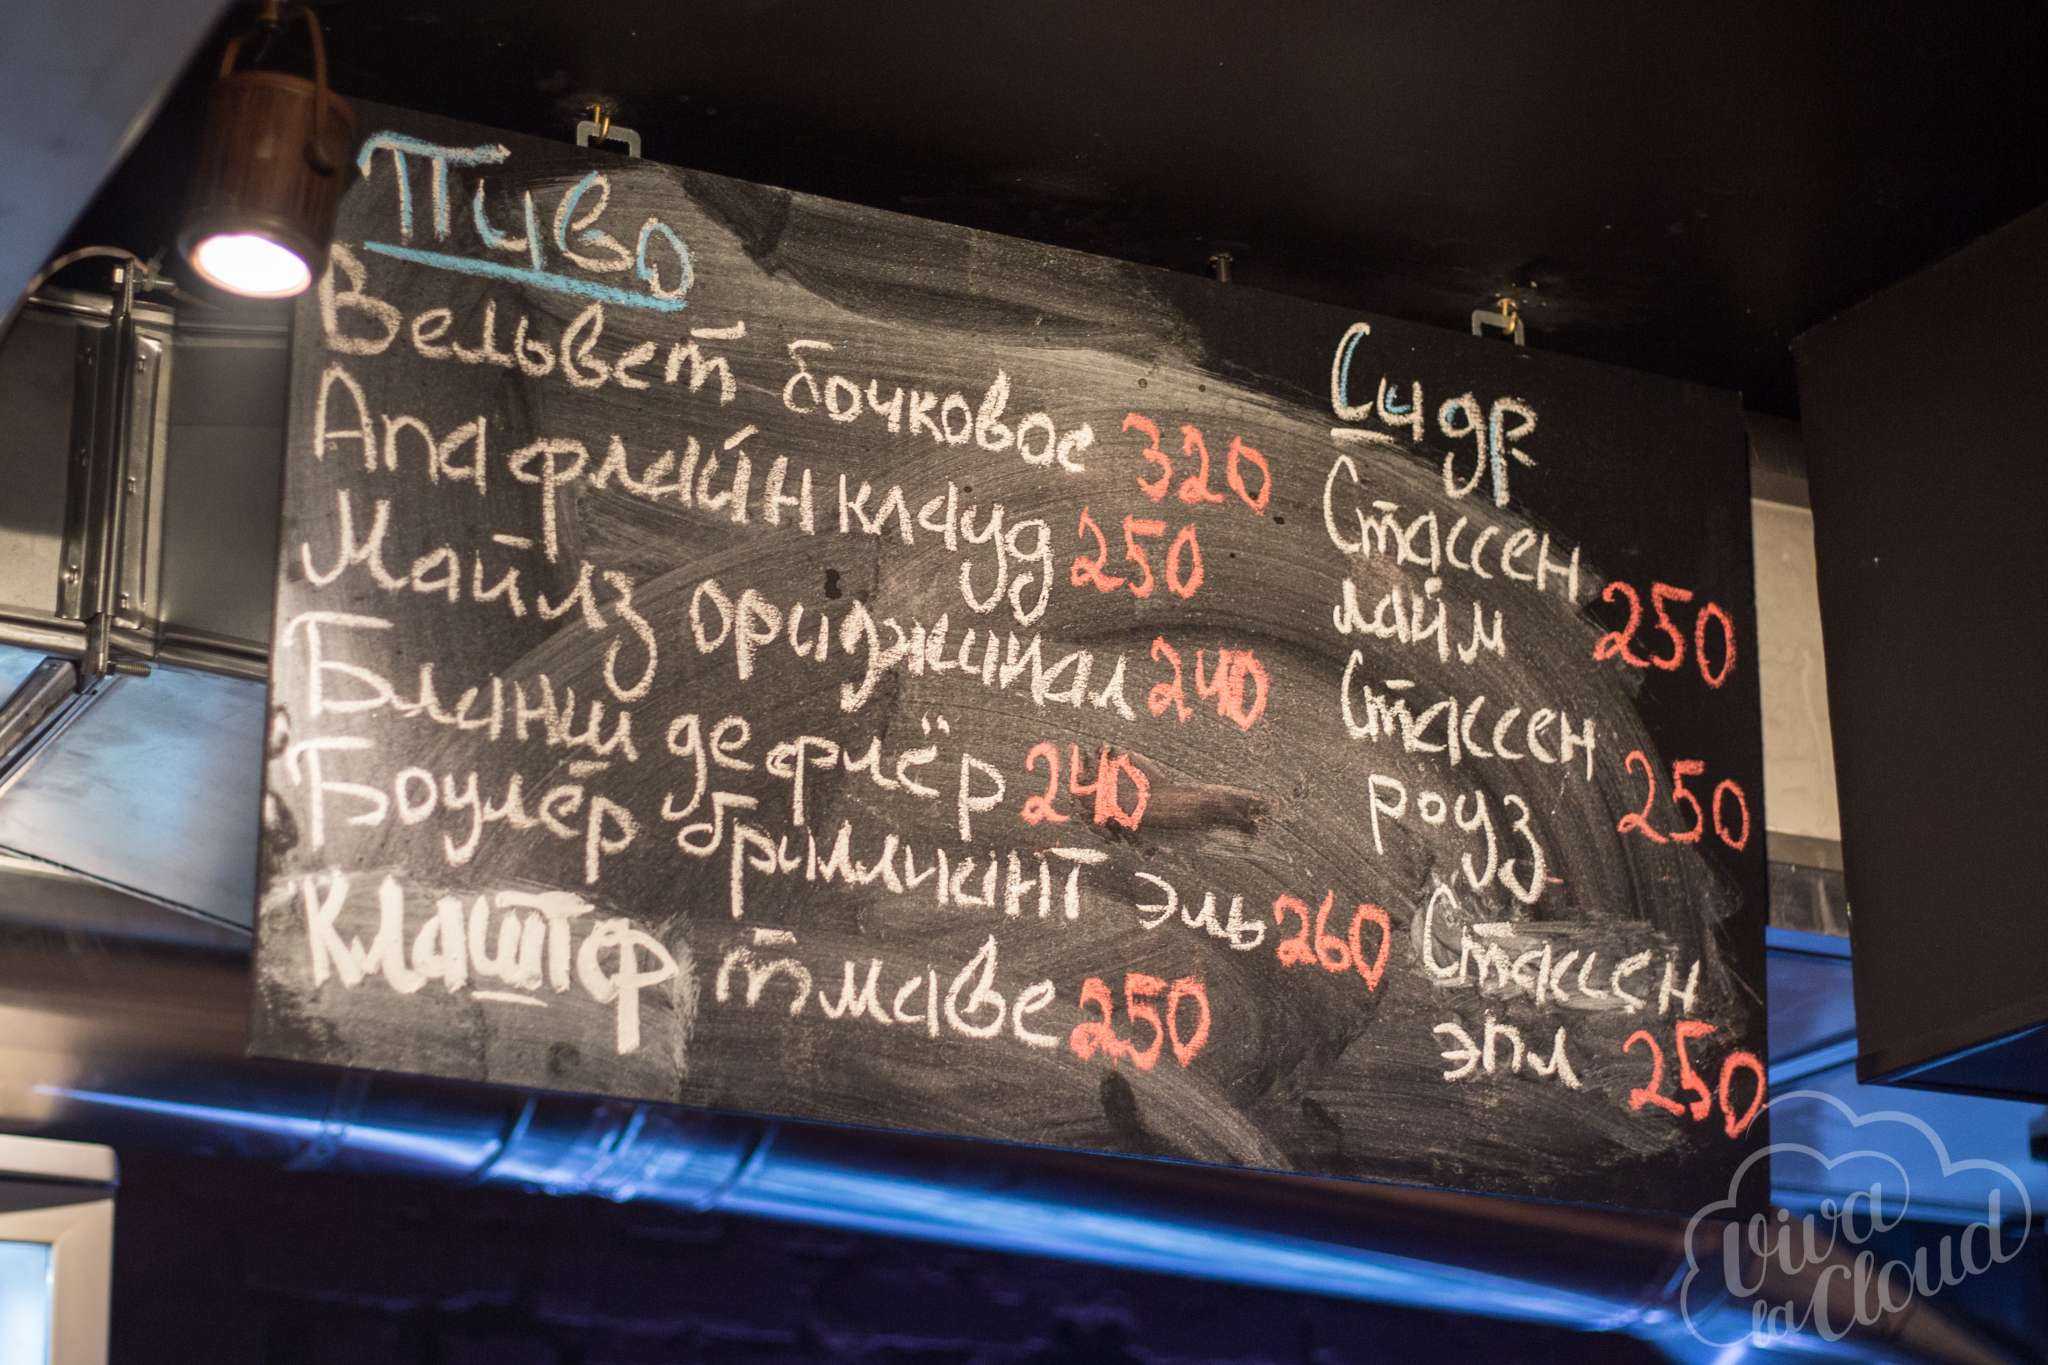 Пиво
Вельвет бочковое 320
Апа флайн клауд 250
Майлз ориджинал 240
Бланш де флёр 240
Боулёр бриллиант эль 260
Клаштер тмаве 250
Сидр
Стассен
лайм 250
Стассен
роуз 250
Стассен
эпл 250
Viva
la Cloud